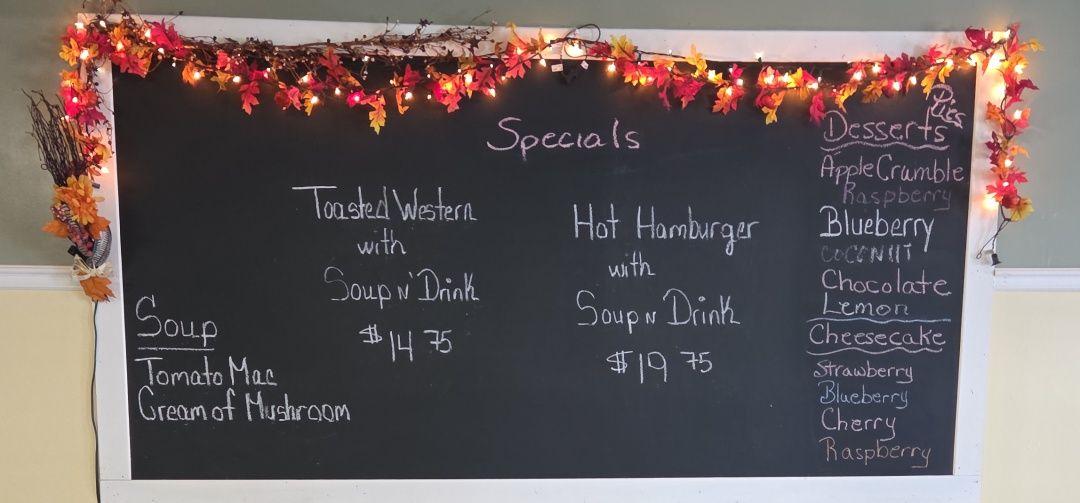 Specials
Toasted Western
with
Soup N' Drink
$14 75
Hot Hamburger
with
Soup N Drink
$19 75
Soup
Tomato Mac
Cream of Mushroom
Pies
Desserts
Apple Crumble
Raspberry
Blueberry
COCONUT
Chocolate
Lemon
Cheesecake
Strawberry
Blueberry
Cherry
Raspberry